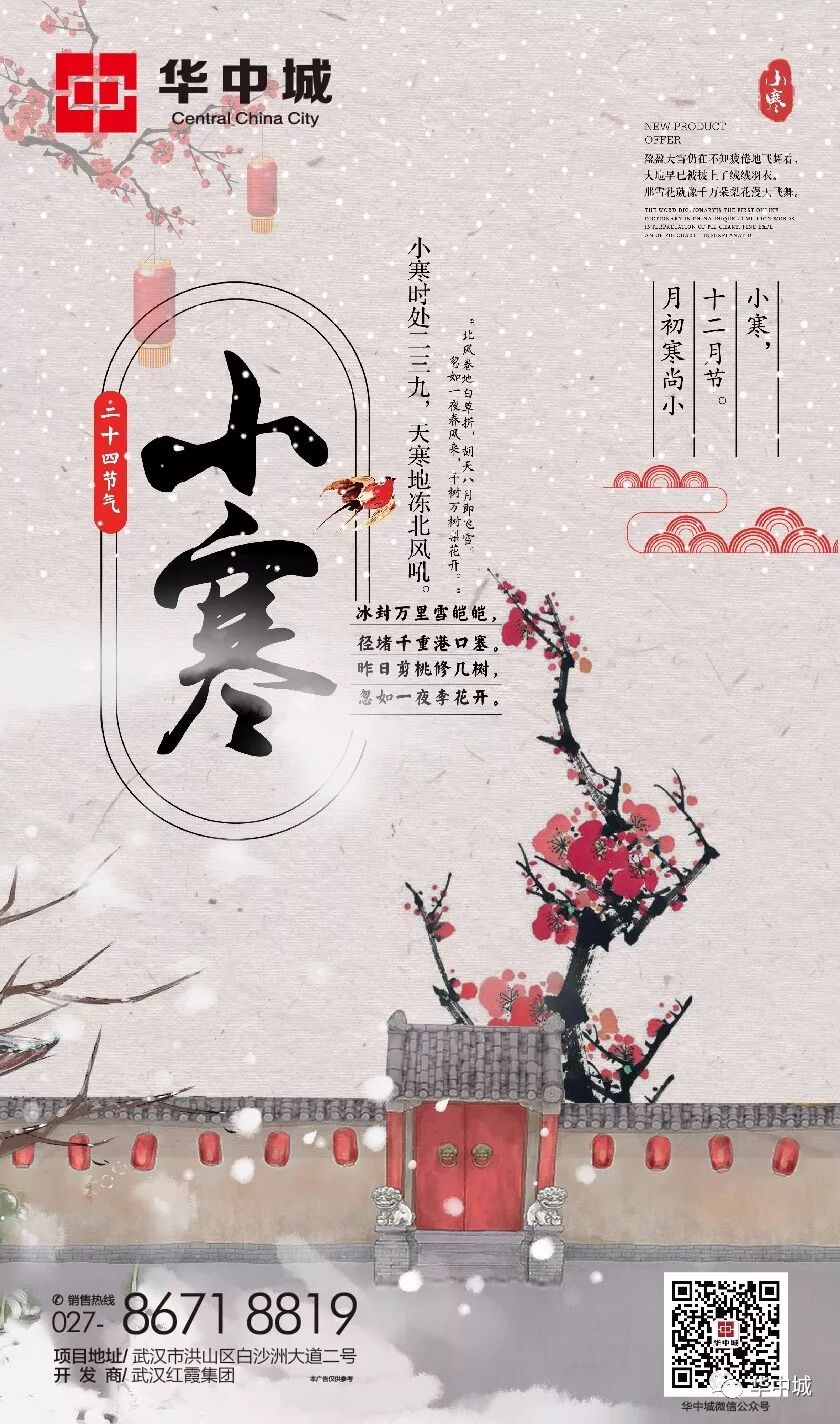 华中城
Central China City
小寒
NEW PRODUCT
OFFER
盈盈大雪仍在不知疲倦地飞舞着,
大地早已被披上了绒绒羽衣。
那雪花就像千万朵梨花漫天飞舞。
小寒,
十二月节。
月初寒尚小
小寒时处二三九，天寒地冻北风吼。
。北风卷地白草折，胡天八月即飞雪。
忽如一夜春风来，千树万树梨花开。。
二十四节气
小寒
冰封万里雪皑皑，
径堵千重港口塞。
昨日剪桃修几树，
忽如一夜李花开。
销售热线
027- 8671 8819
项目地址/ 武汉市洪山区白沙洲大道二号
开 发 商/ 武汉红霞集团
本广告仅供参考
华中城
华中城微信公众号
华中城